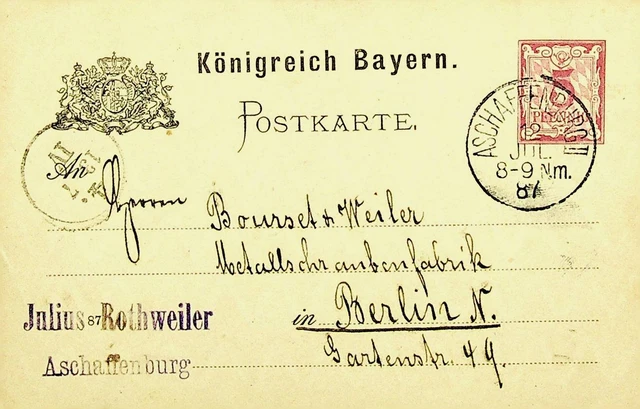 Königreich Bayern.
POSTKARTE.
5
PFENNIG
ASCHAFFENBURG
12
JUL.
8-9 Nm.
87
An
Herren Bourset & Weiler
Metallschraubenfabrik
in Berlin N.
Gartenstr. 49.
Julius Rothweiler
87
Aschaffenburg